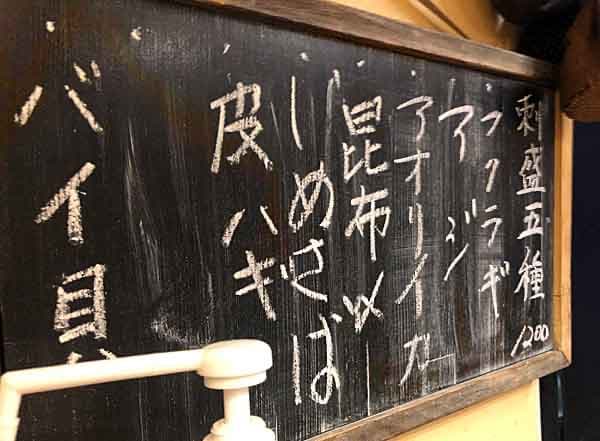 刺盛五種 1200
フクラギ
アジ
アオリイカ
昆布〆
しめさば
皮ハギ
バイ貝